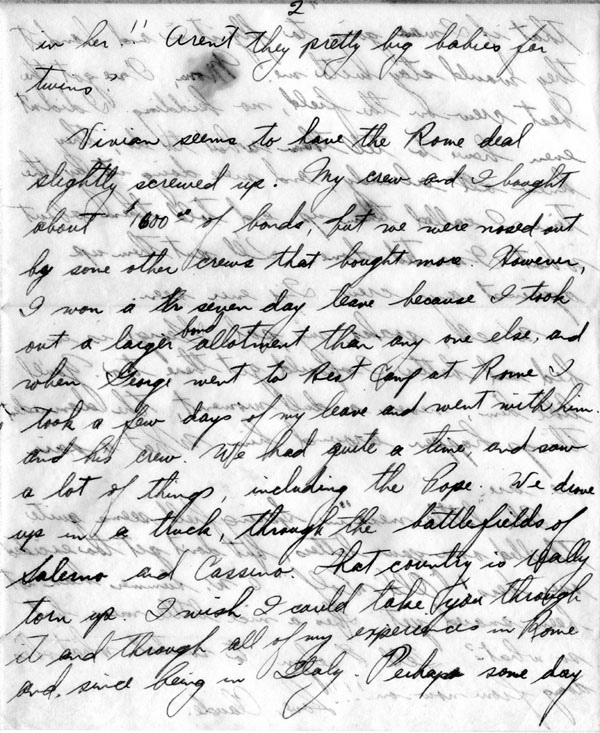 2
in her!! Aren't they pretty big babies for
twins?
Vivian seems to have the Rome deal
slightly screwed up. My crew and I bought
about $1600.00 of bonds, but we were nosed out
by some other crews that bought more. However,
I won a seven day leave because I took
out a larger bond allotment than any one else, and
when George went to Rest Camp at Rome I
took a few days of my leave and went with him
and his crew. We had quite a time and saw
a lot of things, including the Pope. We drove
up in a truck, through the battlefields of
Salerno and Cassino. That country is really
torn up. I wish I could take you through
it and through all of my experiences in Rome
and, since being in Italy. Perhaps some day